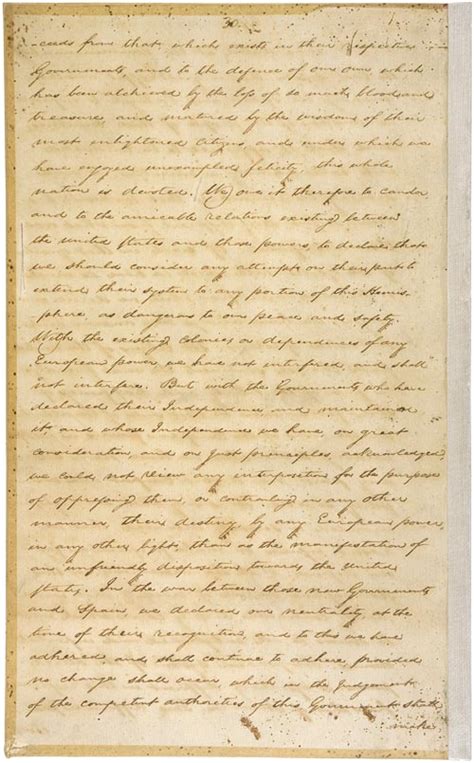 -ceeds from that which exists in their respective
Governments, and to the defence of our own, which
has been atchieved by the loss of so much blood and
treasure, and matured by the wisdom of their
most enlightened citizens, and under which we
have enjoyed unexampled felicity, this whole
nation is devoted. We owe it therefore to candor
and to the amicable relations existing between
the United States and those powers, to declare that
we should consider any attempt on their part to
extend their system to any portion of this Hemis-
phere, as dangerous to our peace and safety.
With the existing Colonies or dependencies of any
European power, we have not interfered, and shall
not interfere. But with the Governments who have
declared their Independence, and maintained
it, and whose Independence we have, on great
consideration, and on just principles, acknowledged,
we could not view any interposition for the purpose
of oppressing them, or controuling in any other
manner, their destiny, by any European power,
in any other light, than as the manifestation of
an unfriendly disposition towards the United
States. In the war between those new Governments
and Spain we declared our neutrality, at the
time of their recognition, and to this we have
adhered, and shall continue to adhere, provided
no change shall occur, which in the Judgement
of the competent authorities of this Government, shall
make